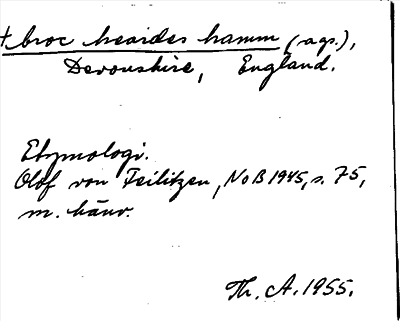 † broc heardes hamm (ags.),
Devonshire, England.
Etymologi.
Olof von Feilitzen, NoB 1945, s. 75,
m. hänv.
Th. A. 1955.